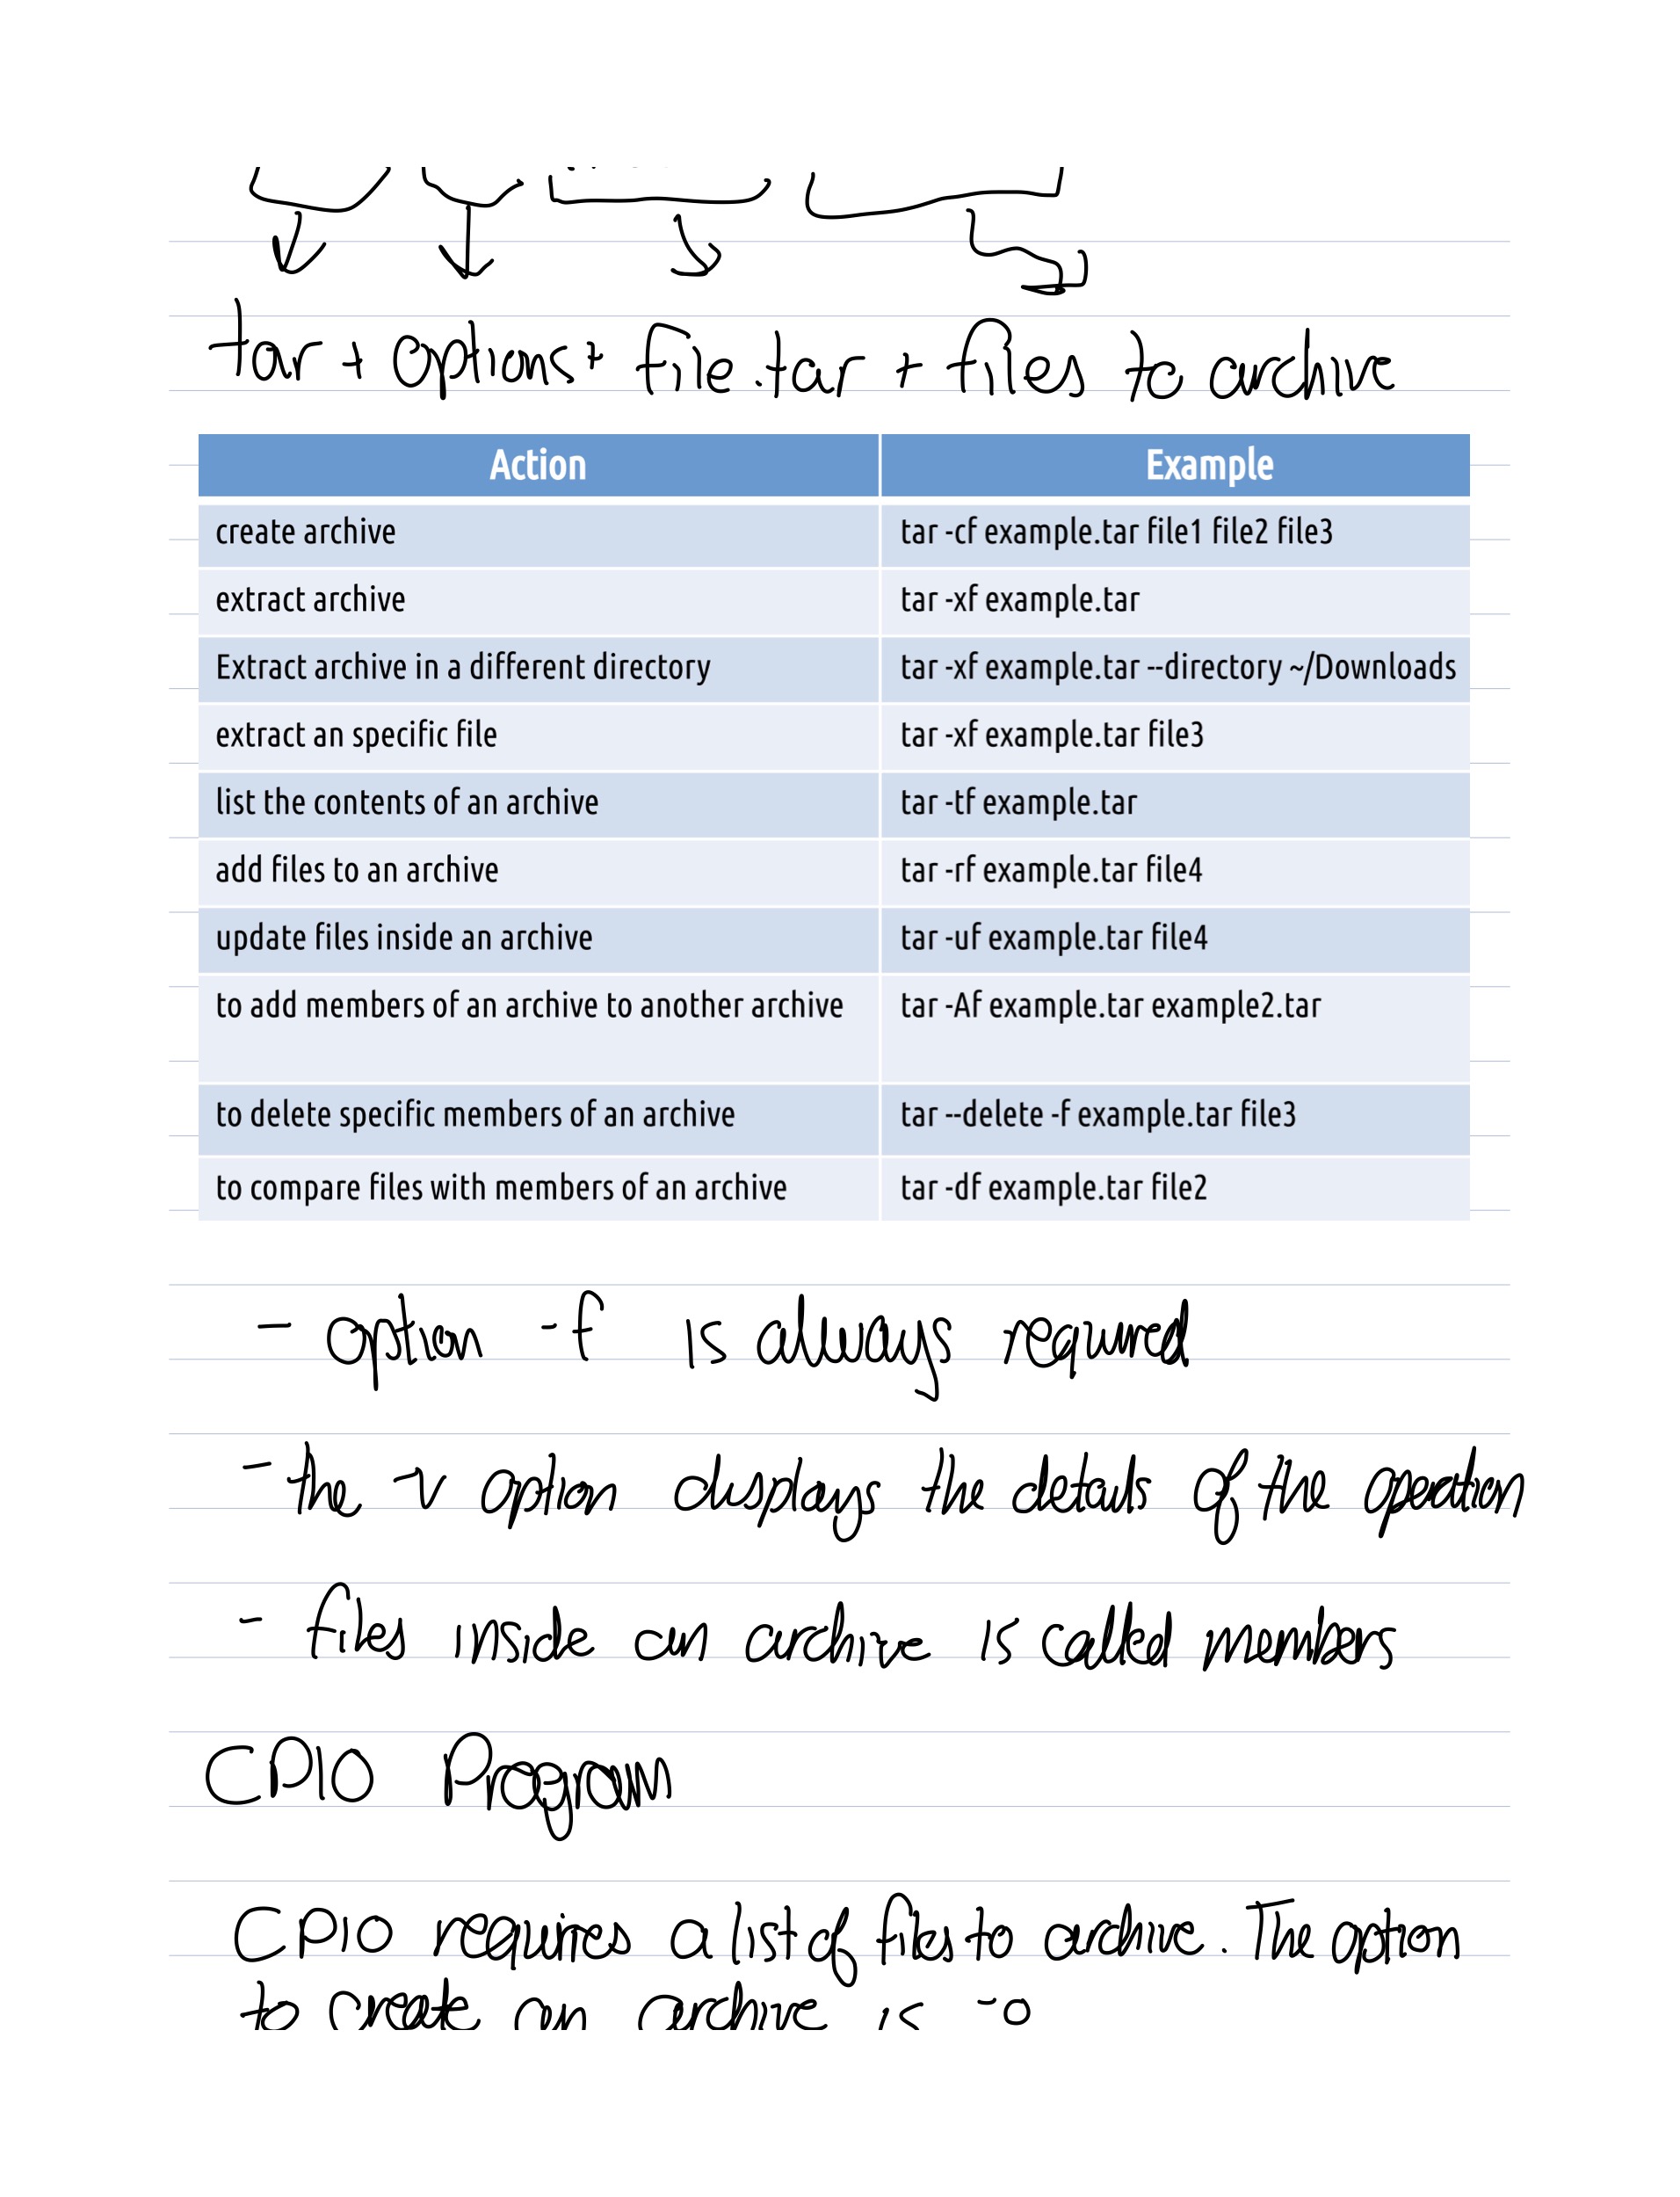 tar + options + file.tar + files to archive
Action Example
create archive tar -cf example.tar file1 file2 file3
extract archive tar -xf example.tar
Extract archive in a different directory tar -xf example.tar --directory ~/Downloads
extract an specific file tar -xf example.tar file3
list the contents of an archive tar -tf example.tar
add files to an archive tar -rf example.tar file4
update files inside an archive tar -uf example.tar file4
to add members of an archive to another archive tar -Af example.tar example2.tar
to delete specific members of an archive tar --delete -f example.tar file3
to compare files with members of an archive tar -df example.tar file2
- option -f is always required
- the v option displays the details of the operation
- files inside an archive is called members
CPIO Program
CPIO requires a list of files to archive. The option
to create an archive is -o